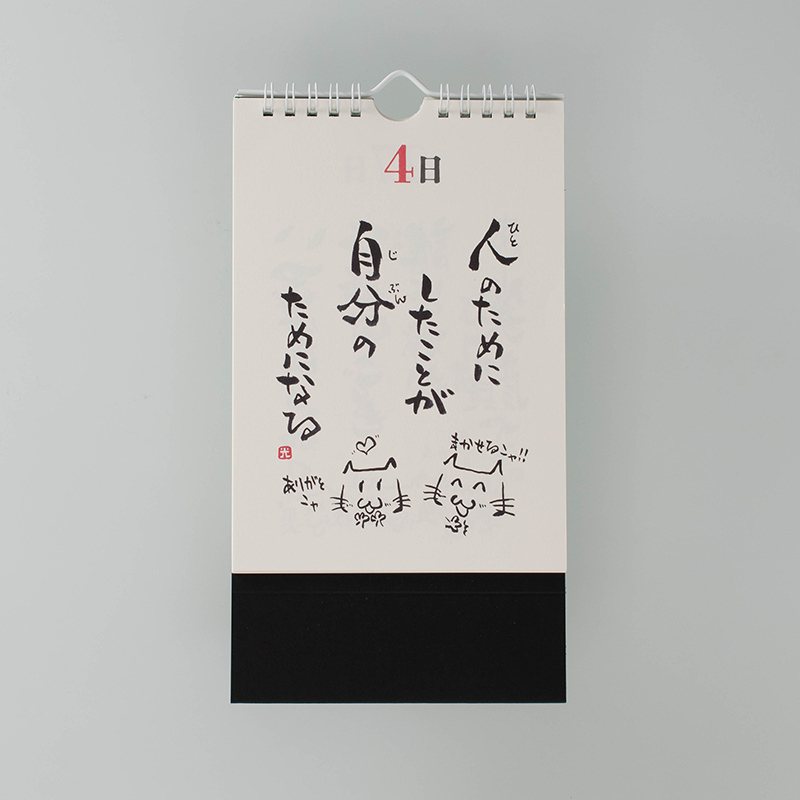 4日
人のために
ひと
したことが
自分の
じぶん
ためになる
光
まかせるニャ!!
ありがと
ニャ